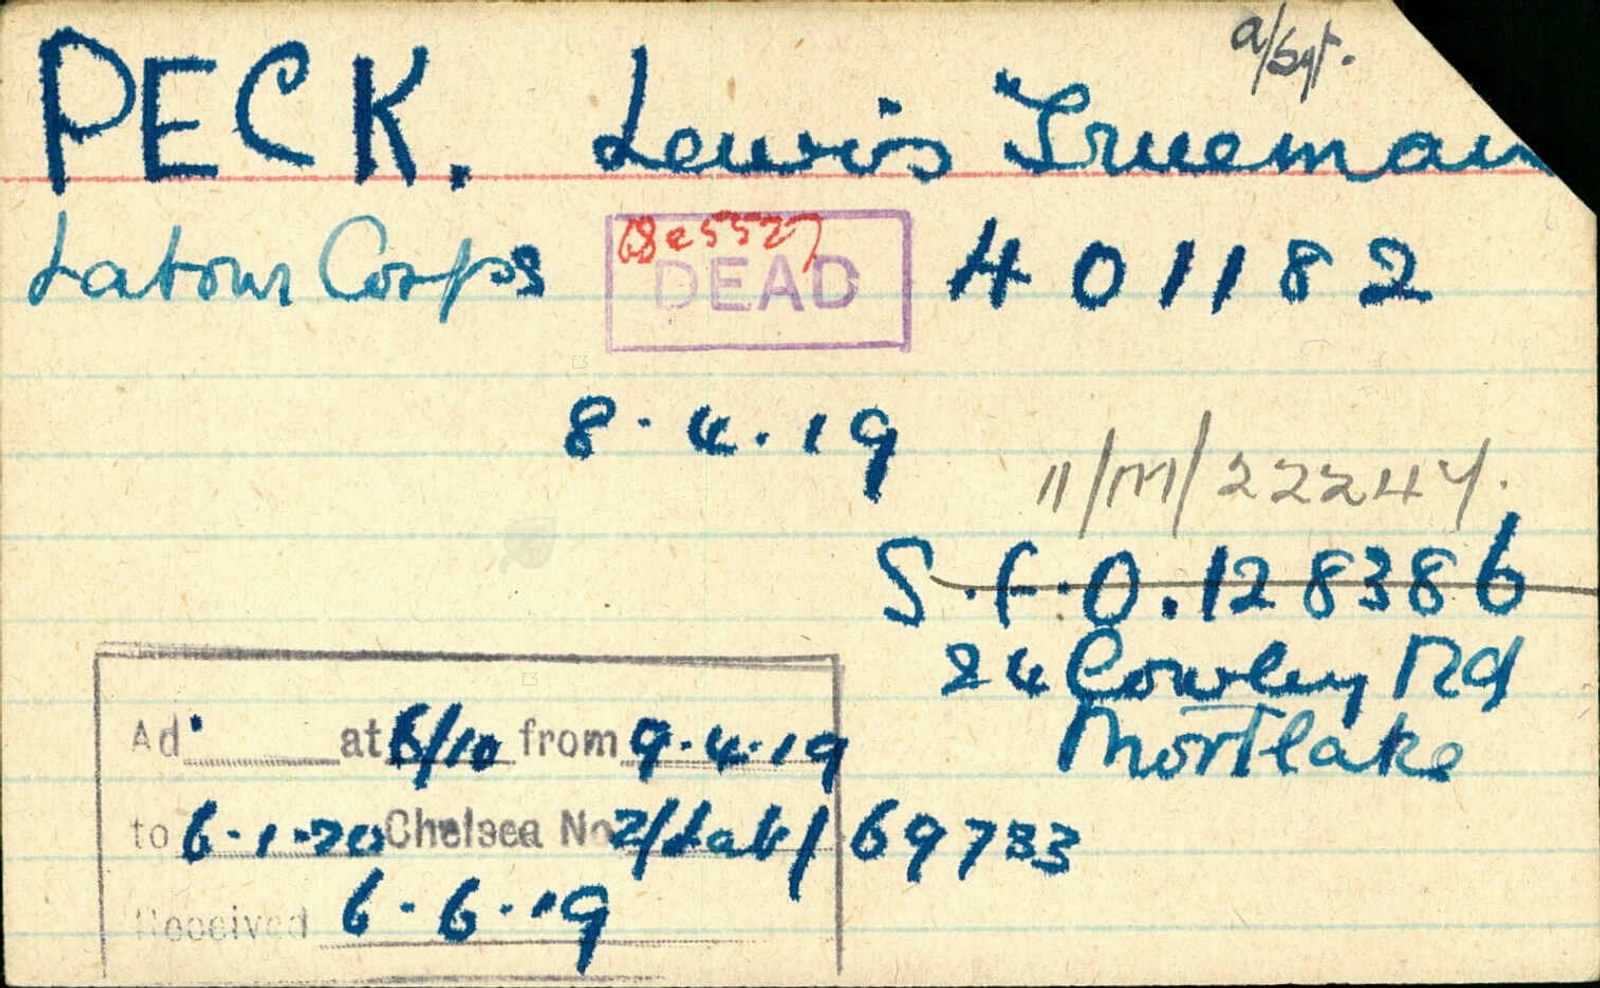 a/Sgt.
PECK. Lewis Trueman
Labour Corps DEAD 401182
8.4.19
11/M/22247.
S.F.O. 128386
24 Cowley Rd
Mortlake
Ad at 5/10 from 9.4.19
to 6.1.20 Chelsea No 2/Lab/69733
Received 6.6.19